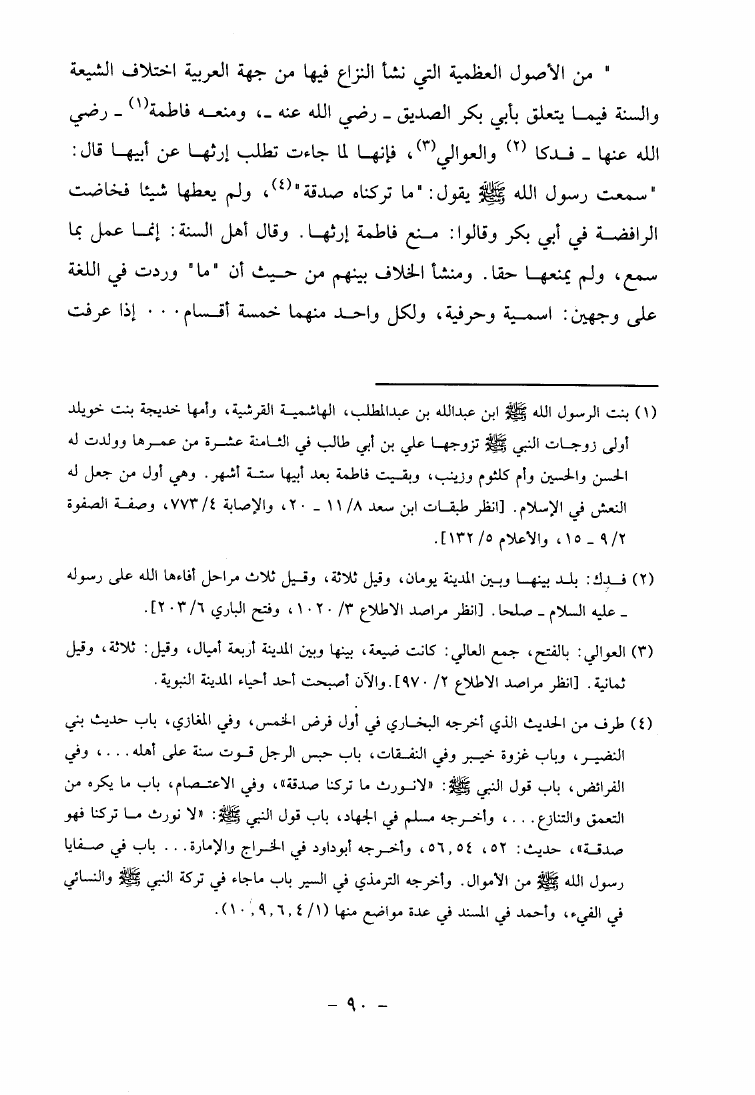 " من الأصول العظمية التي نشأ النزاع فيها من جهة العربية اختلاف الشيعة
والسنة فيمـا يتعلق بأبي بكر الصديق ـ رضي الله عنه ـ، ومنعـه فاطمة(١) ـ رضي
الله عنها ـ فـدكا (٢) والعوالي(٣)، فإنهـا لما جاءت تطلب إرثهـا عن أبيهـا قال:
"سمعت رسول الله ﷺ يقول: "ما تركناه صدقة"(٤)، ولم يعطها شيئا فخاضت
الرافضـة في أبي بكر وقالوا: مـنع فاطمة إرثهـا. وقال أهل السنة: إنمـا عمل بما
سمع، ولم يمنعهـا حقا. ومنشأ الخلاف بينهم من حـيث أن "ما" وردت في اللغة
على وجهين: اسمـية وحرفية، ولكل واحـد منهما خمسة أقـسام... إذا عرفت
(١) بنت الرسول الله ﷺ ابن عبدالله بن عبدالمطلب، الهاشميـة القرشية، وأمها خديجة بنت خويلد
أولى زوجـات النبي ﷺ تزوجهـا علي بن أبي طالب في الثـامنة عشـرة من عمـرها وولدت له
الحسن والحسين وأم كلثوم وزينب، وبقـيت فاطمة بعد أبيها ستـة أشهر. وهي أول من جعل له
النعش في الإسلام. [انظر طبقـات ابن سعد ٨/ ١١ ـ ٢٠، والإصابة ٤/ ٧٧٣، وصفـة الصفوة
٢/ ٩ ـ ١٥، والأعلام ٥/ ١٣٢].
(٢) فـدك: بلـد بينهـا وبـين المدينة يومان، وقيل ثلاثة، وقـيل ثلاث مراحل أفاءها الله على رسوله
ـ عليه السلام ـ صلحا. [انظر مراصد الاطلاع ٣/ ١٠٢٠، وفتح الباري ٦/ ٢٠٣].
(٣) العوالي: بالفتح، جمع العالي: كانت ضيعة، بينها وبين المدينة أربعة أميال، وقيل: ثلاثة، وقيل
ثمانية. [انظر مراصد الاطلاع ٢/ ٩٧٠].والآن أصبحت أحد أحياء المدينة النبوية.
(٤) طرف من الحديث الذي أخرجه البخـاري في أول فرض الخمس، وفي المغازي، باب حديث بني
النضـير، وباب غزوة خيـبر وفي النفـقات، باب حبس الرجل قـوت سنة على أهله...، وفي
الفرائض، باب قول النبي ﷺ: «لانـورث ما تركنا صدقة»، وفي الاعتـصام، باب ما يكره من
التعمق والتنازع...، وأخـرجه مسلم في الجهاد، باب قول النبي ﷺ: «لا نورث مـا تركنا فهو
صدقـة»، حديث: ٥٢، ٥٤, ٥٦، وأخـرجه أبوداود في الخراج والإمارة... باب في صـفايا
رسول الله ﷺ من الأموال. وأخرجه الترمذي في السير باب ماجاء في تركة النبي ﷺ والنسائي
في الفيء، وأحمد في المسند في عدة مواضع منها (١/ ٤, ٦, ٩, ١٠).
- ٩٠ -